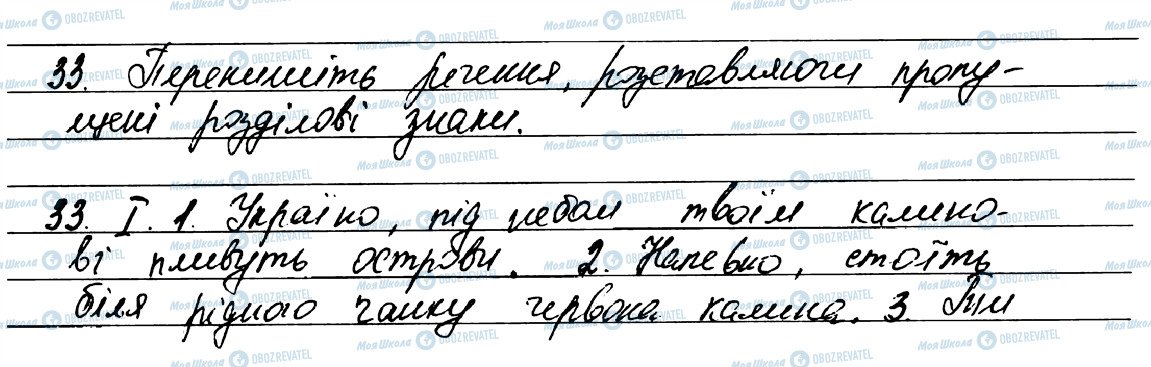 33. Перепишіть речення, розставляючи пропу-
щені розділові знаки.
33. І. 1. Україно, під небом твоїм калино-
ві пливуть острови. 2. Напевно, стоїть
біля рідного ганку червона калина. 3. Ти